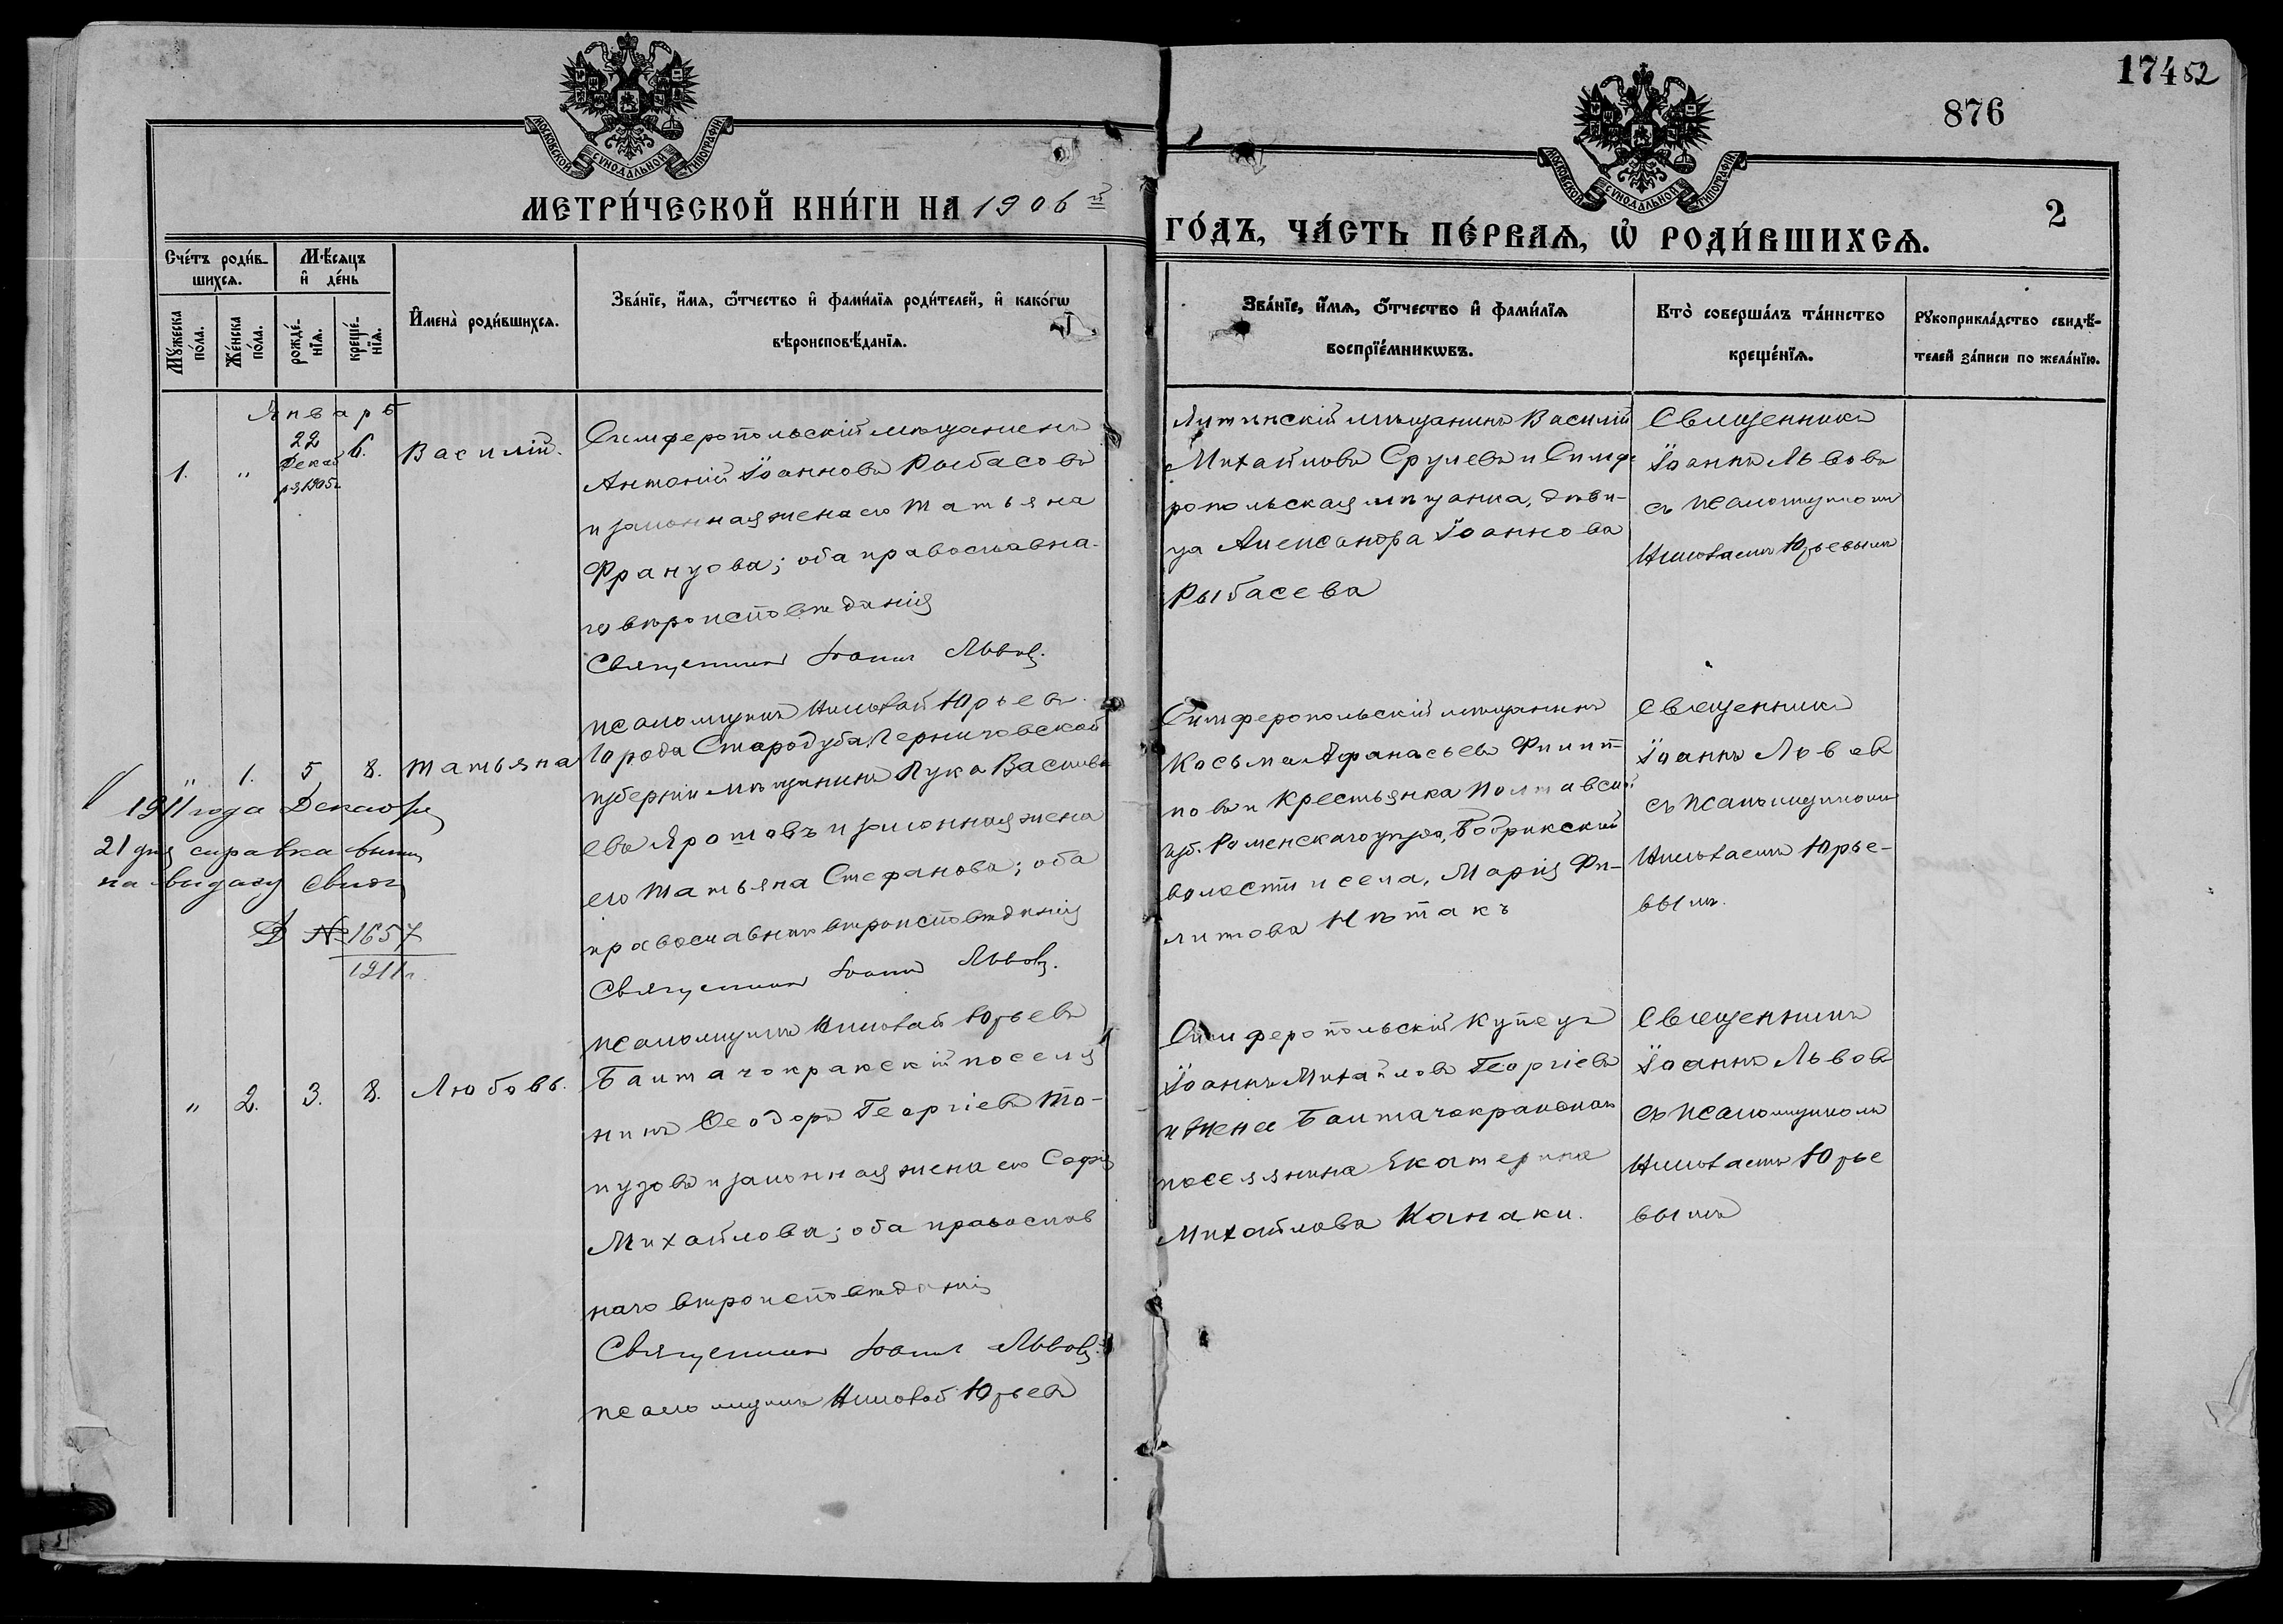 174 52
876
2
МОСКОВСКОЙ СѴНОДАЛЬНОЙ ТИПОГРАФІИ
МОСКОВСКОЙ СѴНОДАЛЬНОЙ ТИПОГРАФІИ
МЕТРИ́ЧЕСКОЙ КНИ́ГИ НА 1906й
ГО́ДЪ, ЧА́СТЬ ПЕ́РВАѦ, Ѡ҆ РОДИ́ВШИХСѦ.
Сче́тъ роди́в-
шихсѧ.
Мѣ́сѧцъ
и҆ де́нь
Мꙋ́жеска
по́ла.
Же́нска
по́ла.
рожде́-
нїѧ.
креще́-
нїѧ.
И҆мена̀ роди́вшихсѧ.
Зва́нїе, и҆́мѧ, ѻ҆́тчество и҆ фами́лїѧ роди́телей, и҆ како́гѡ
вѣроисповѣ́данїѧ.
Зва́нїе, и҆́мѧ, ѻ҆́тчество и҆ фами́лїѧ
воспрїе́мникѡвъ.
Кто̀ соверша́лъ та́инство
креще́нїѧ.
Рꙋкоприкла́дство свидѣ́-
телей за́писи по жела́нїю.
Январь
1. " 22 Декаб ря 1905г. 6. Василій.
Симферопольскій мѣщанинъ
Антоній Іоанновъ Рыбасовъ
и законная жена его Татьяна
Францова; оба православна-
го вѣроисповѣданія
Священникъ Іоаннъ Львовъ.
псаломщикъ Николай Юрьевъ.
мѣщанинъ Василій
Михайловъ Срулевъ и Симфе
ропольская мѣщанка, дѣви-
ца Александра Іоаннова
Рыбасева
Священникъ
Іоаннъ Львовъ
съ псаломщикомъ
Николаемъ Юрьевымъ
" 1. 5. 8. Татьяна
Города Стародуба, Черниговской
губерніи мѣщанинъ Лука Василь
евъ Яротовъ и законная жена
его Татьяна Стефанова; оба
православнаго вѣроисповѣданія
Священникъ Іоаннъ Львовъ.
псаломщикъ Николай Юрьевъ
1911 года Декабря
21 дня справка
на выдачу свид
Д №1657
1911г.
Симферопольскій мѣщанинъ
Косьма Афанасьевъ Филип-
повъ и крестьянка Полтавской
губ. Роменскаго уѣзда, Бобрикской
волости и села, Марія Фи-
липова Нѣтакъ
Священникъ
Іоаннъ Львовъ
съ псаломщикомъ
Николаемъ Юрье-
вымъ.
" 2. 3. 8. Любовь.
поселя
нинъ Ѳеодоръ Георгіевъ То-
пузовъ и законная жена его Софія
Михайлова; оба православ
наго вѣроисповѣданія
Священникъ Іоаннъ Львовъ.
псаломщикъ Николай Юрьевъ
Симферопольскій купецъ
Іоаннъ Михайловъ Георгіевъ
и жена
поселянина Екатерина
Михайлова Канаки.
Священникъ
Іоаннъ Львовъ
съ псаломщикомъ
Николаемъ Юрье
вымъ